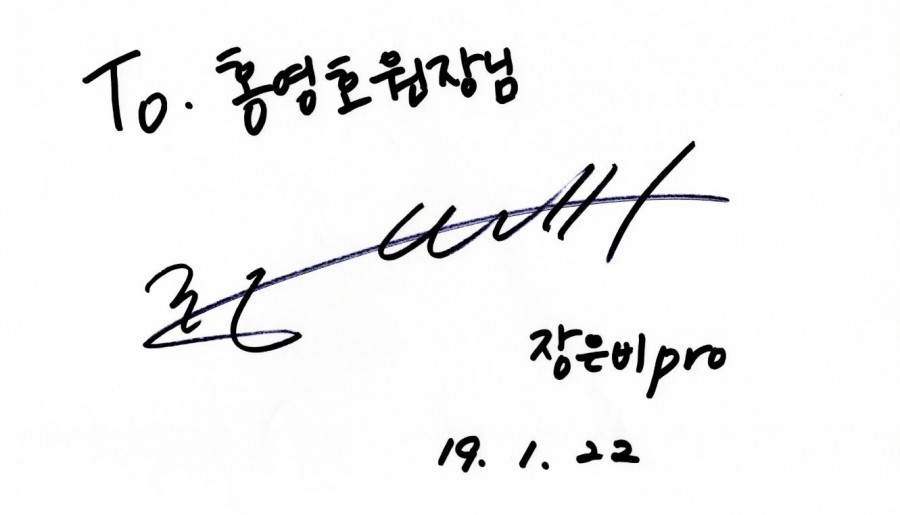 To. 홍영호원장님
장은비pro
19. 1. 22